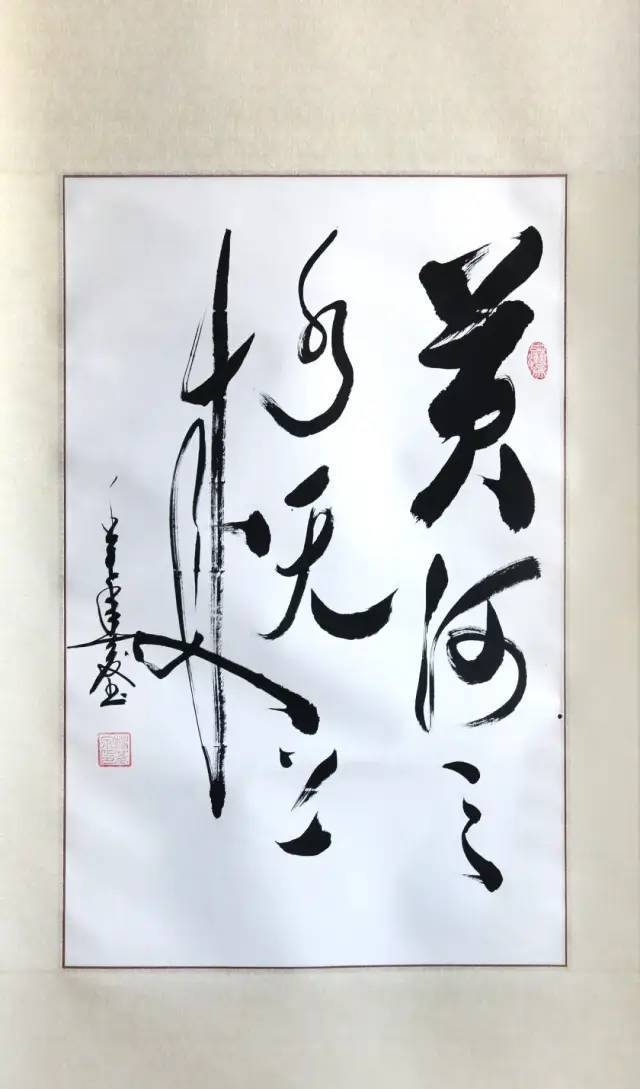 黄河之
水天上
来